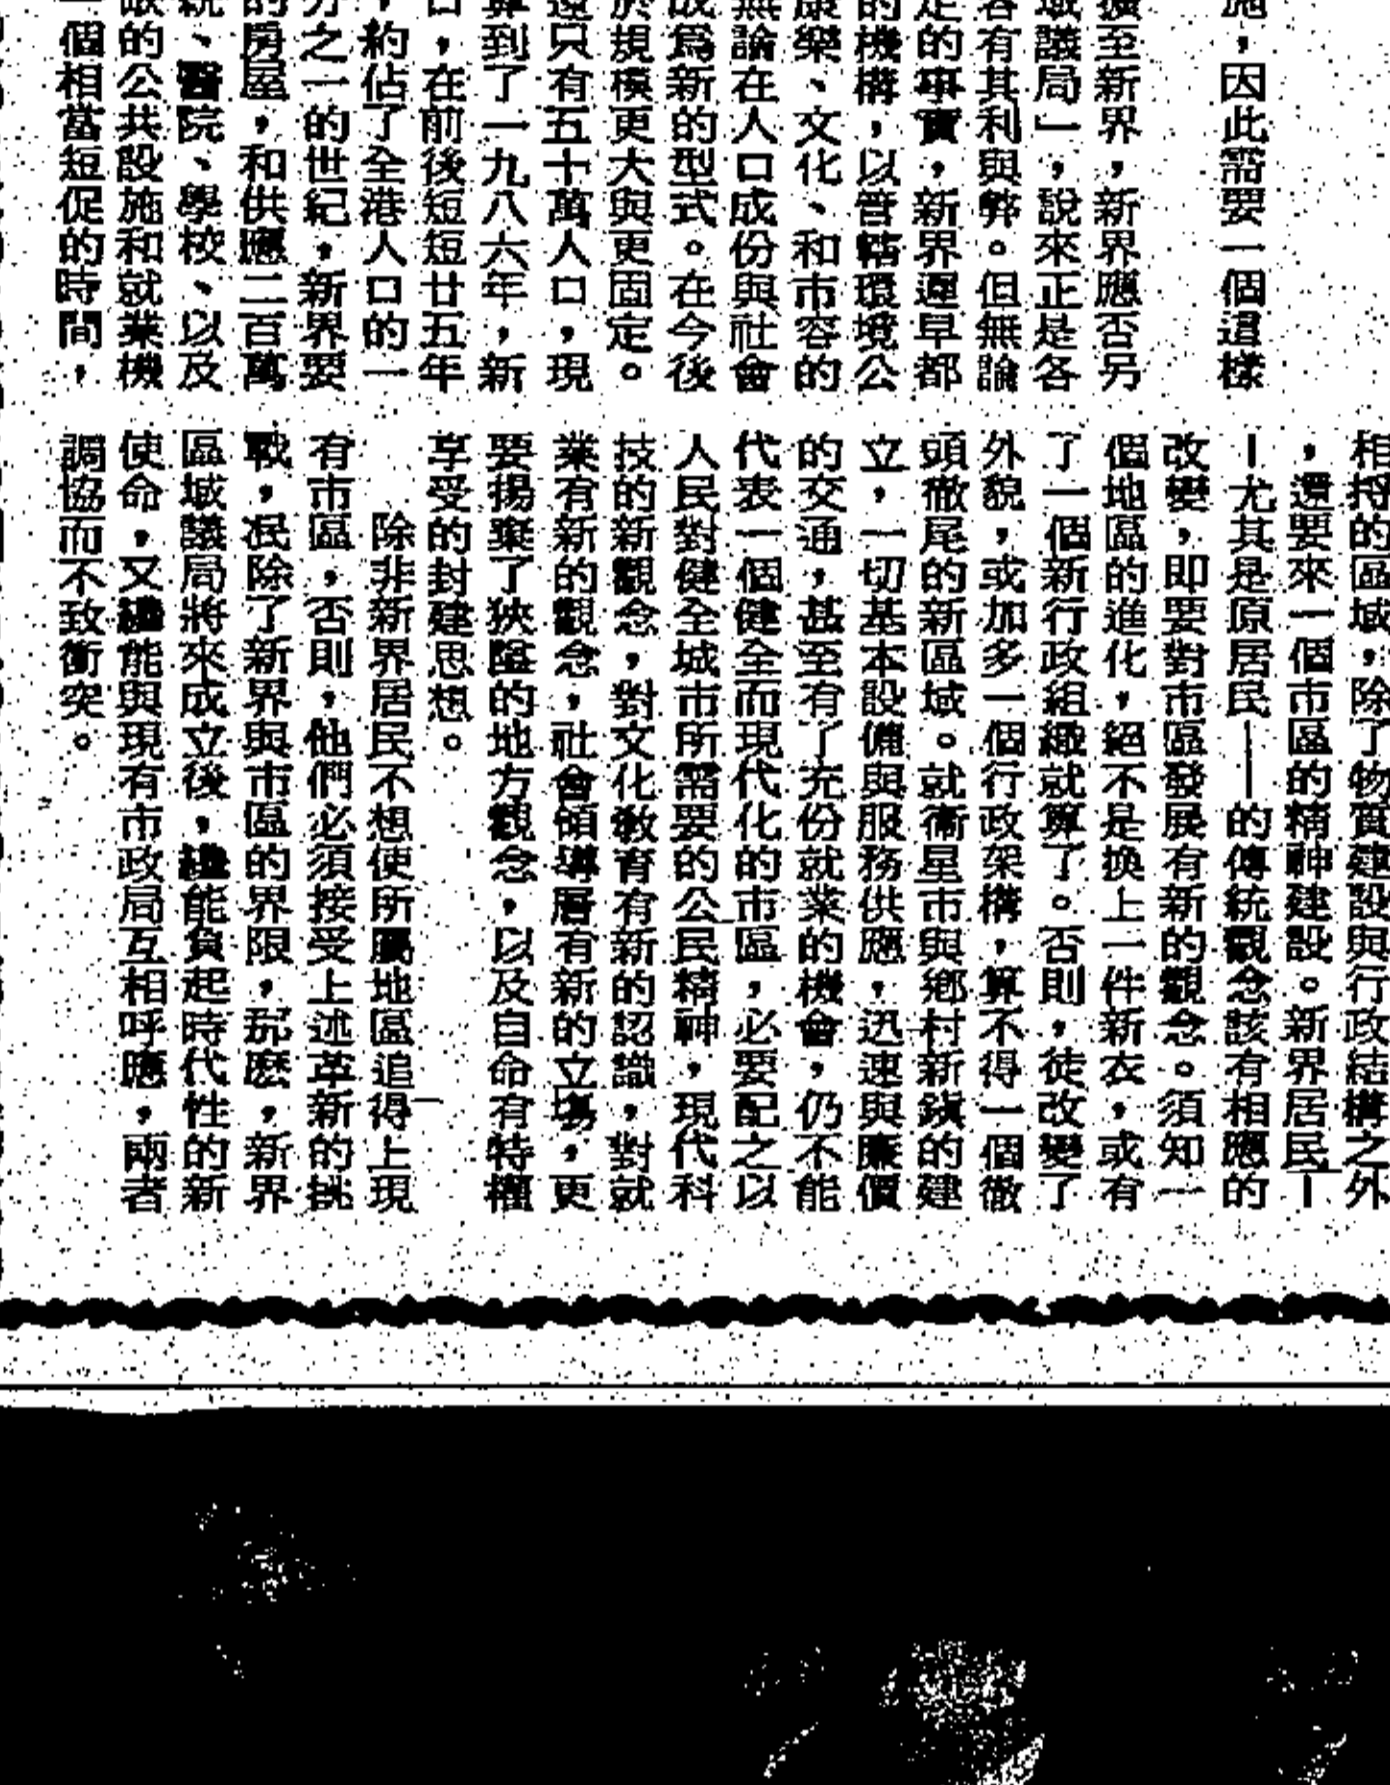 施，因此需要一個這樣
擴至新界，新界應否另
域議局」，說來正是各
各有其利與弊。但無論
定的事實，新界遲早都
的機構，以管轄環境公
康樂、文化、和市容的
無論在人口成份與社會
成爲新的型式。在今後
於規模更大與更固定。
還只有五十萬人口，現
算到了一九八六年，新
，在前後短短廿五年
，約佔了全港人口的一
分之一的世紀，新界要
的房屋，和供應二百萬
統、醫院、學校、以及
的公共設施和就業機
一個相當短促的時間，
相將的區域，除了物質建設與行政結構之外
，還要來一個市區的精神建設。新界居民—
—尤其是原居民——的傳統觀念該有相應的
改變，即要對市區發展有新的觀念。須知一
個地區的進化，絕不是換上一件新衣，或有
了一個新行政組織就算了。否則，徒改變了
外貌，或加多一個行政架構，算不得一個徹
頭徹尾的新區域。就衞星市與鄉村新鎮的建
立，一切基本設備與服務供應，迅速與廉價
的交通，甚至有了充份就業的機會，仍不能
代表一個健全而現代化的市區，必要配之以
人民對健全城市所需要的公民精神，現代科
技的新觀念，對文化教育有新的認識，對就
業有新的觀念，社會領導層有新的立場，更
要揚棄了狹隘的地方觀念，以及自命有特權
享受的封建思想。
除非新界居民不想使所屬地區追得上現
有市區，否則，他們必須接受上述革新的挑
戰，泯除了新界與市區的界限，那麽，新界
區域議局將來成立後，纔能負起時代性的新
使命，又纔能與現有市政局互相呼應，兩者
調協而不致衝突。